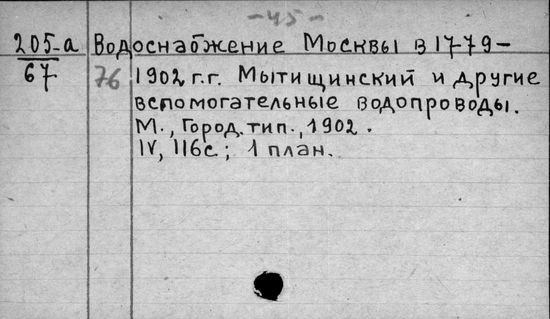 -45-
205-а Водоснабжение Москвы в 1779-
67 76 1902 г.г. Мытищинский и другие
вспомогательные водопроводы.
М., Город. тип., 1902.
IV, 116с; 1 план.